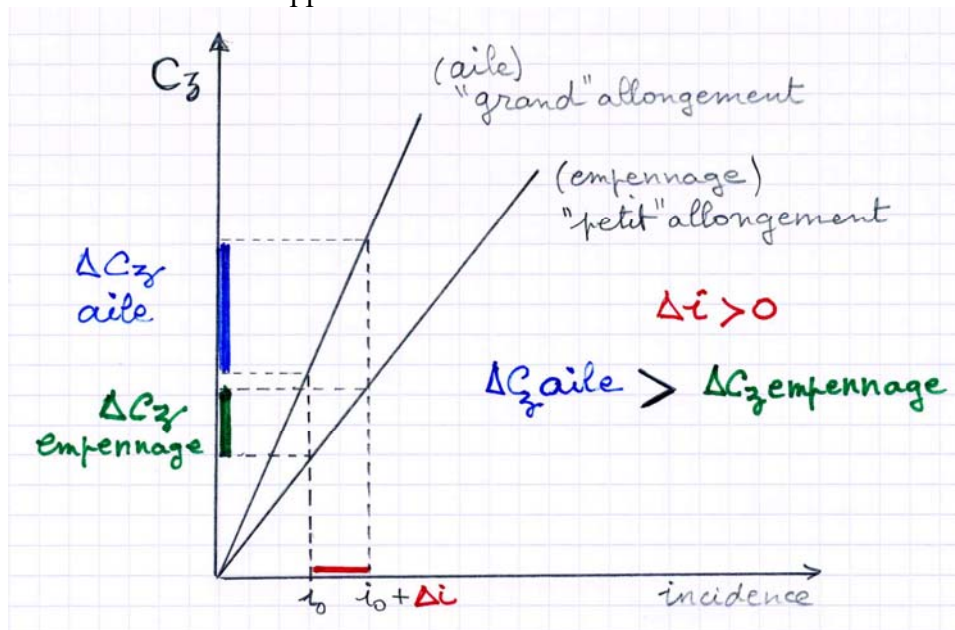 Cz
(aile)
"grand" allongement
(empennage)
"petit" allongement
ΔCz
aile
Δi > 0
ΔCz aile > ΔCz empennage
ΔCz
empennage
i₀
i₀ + Δi
incidence